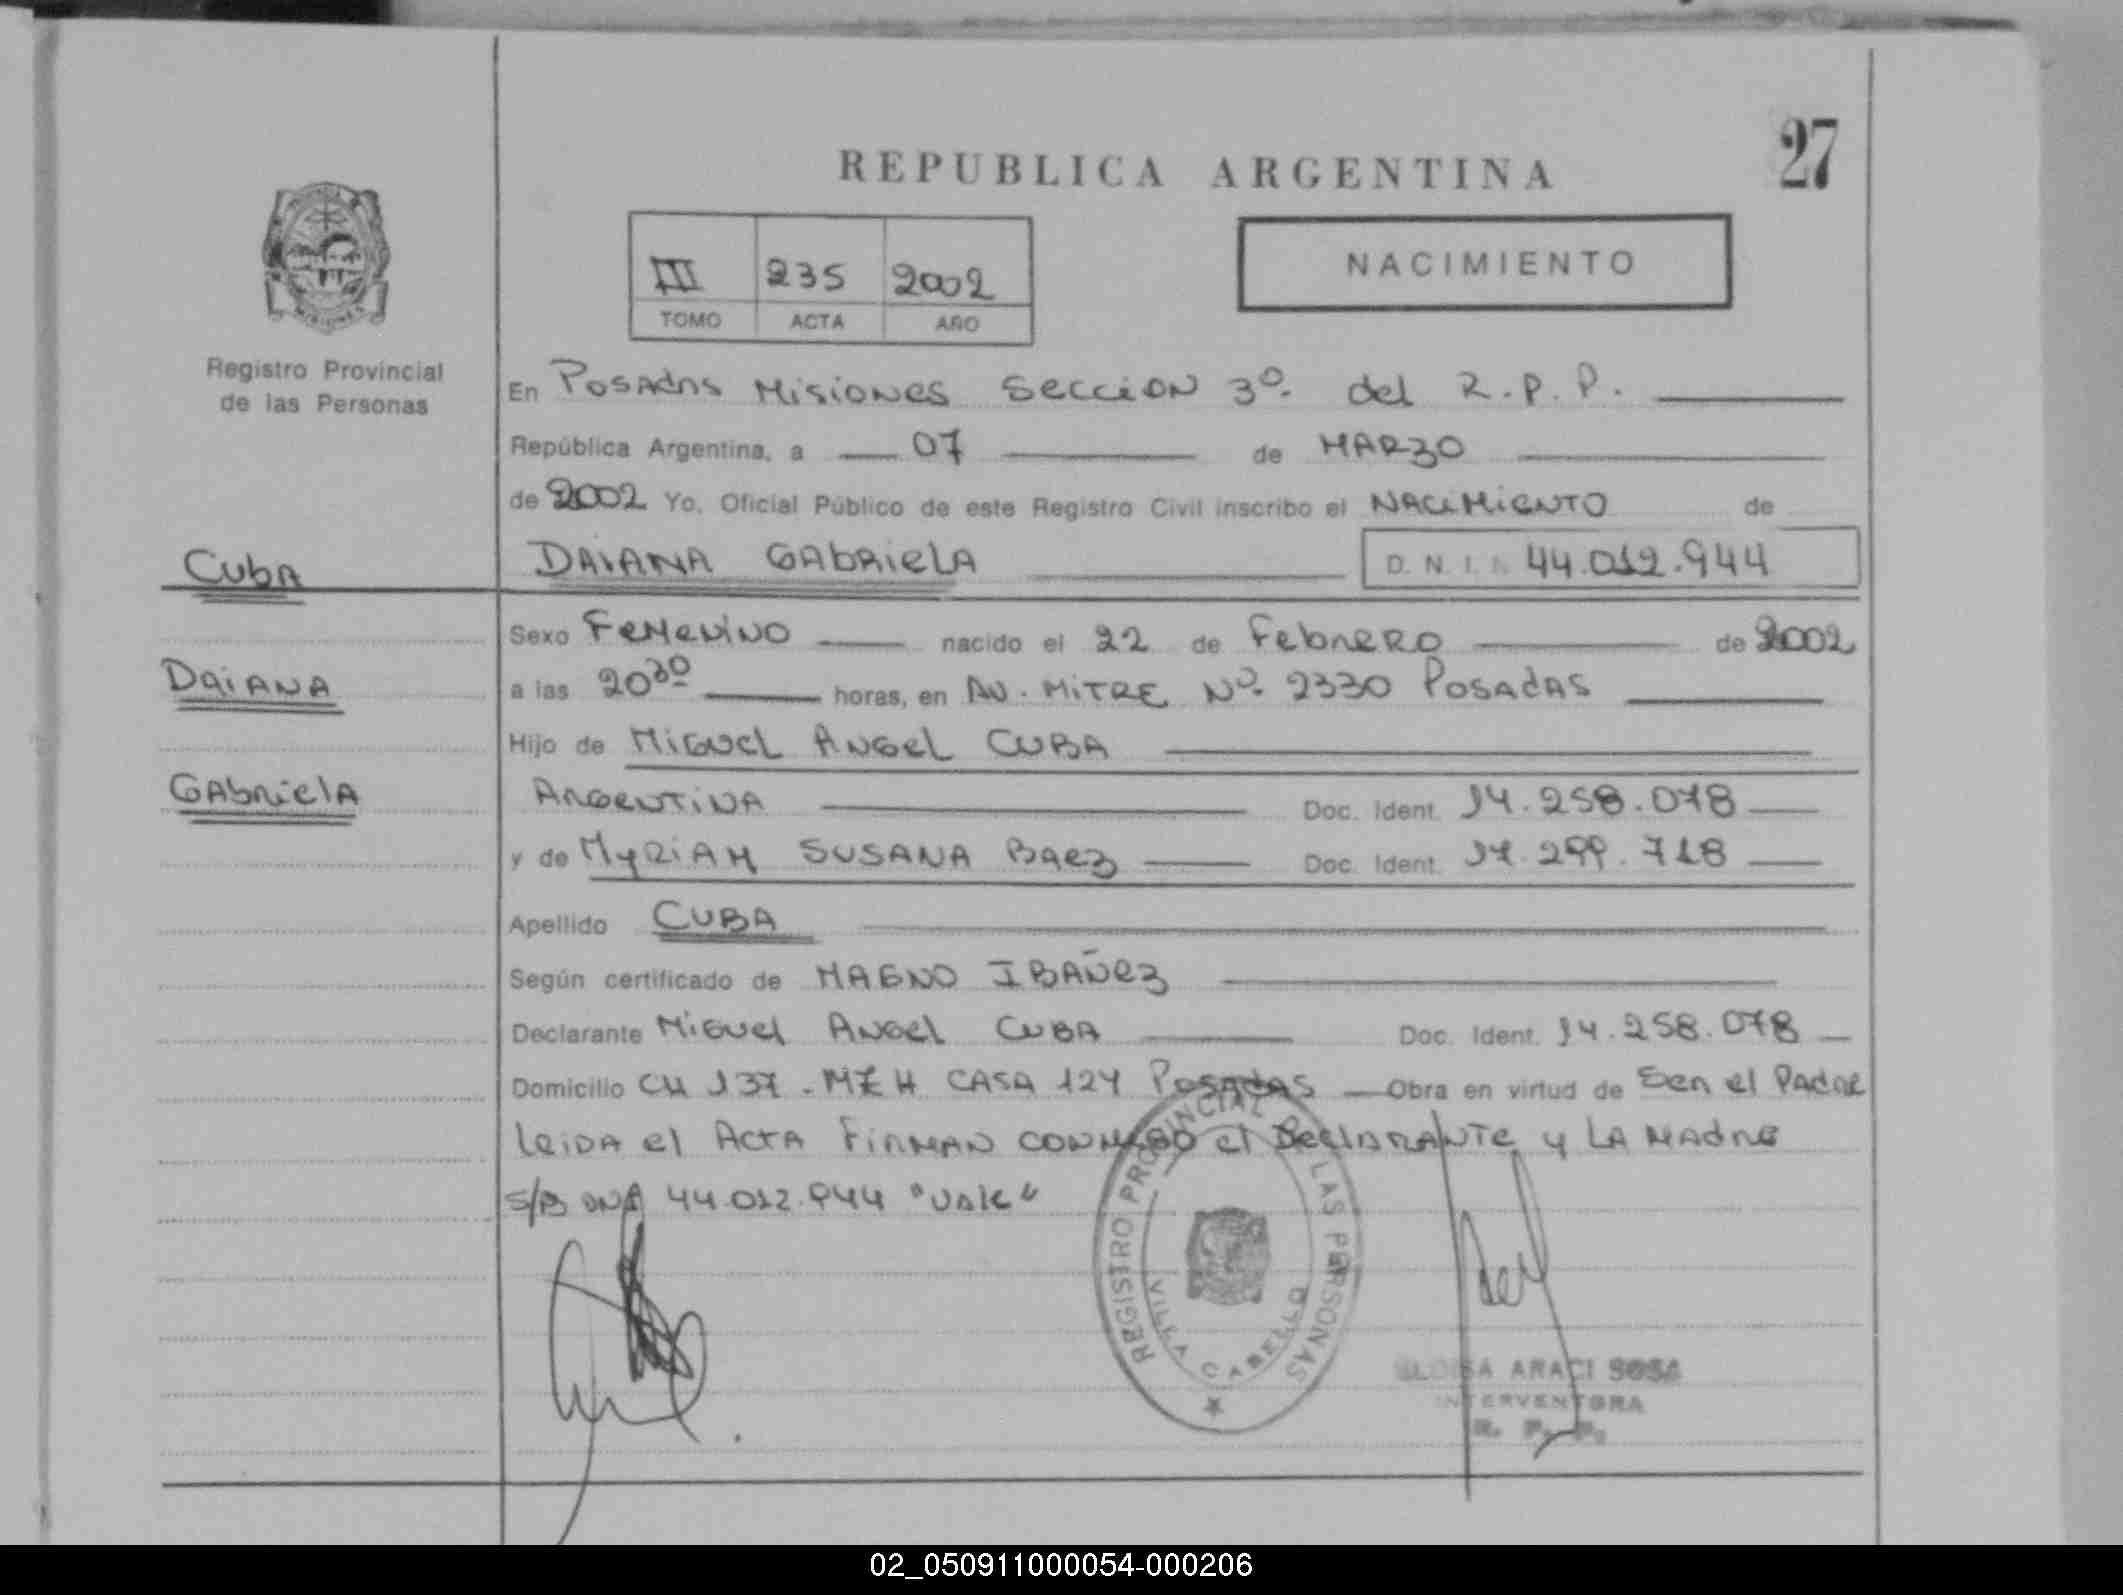 27
REPUBLICA ARGENTINA
III 235 2002
TOMO ACTA AÑO
NACIMIENTO
MISIONES
Registro Provincial
de las Personas
En Posadas Misiones Sección 3º del R.P.P.
República Argentina, a 07 de MARZO
de 2002 Yo, Oficial Público de este Registro Civil inscribo el NACIMIENTO de
Cuba DAIANA GAbRIELA D. N. I. 44.012.944
Sexo Femenino nacido el 22 de Febrero de 2002
Daiana a las 20³⁰ horas, en Av. Mitre Nº 2330 Posadas
Hijo de Miguel Angel CUBA
Gabriela Argentina Doc. Ident. 14.258.078
y de Myriam SUSANA Baez Doc. Ident. 17.299.718
Apellido CUBA
Según certificado de MAGNO IBAÑEZ
Declarante Miguel Angel CUBA Doc. Ident. 14.258.078
Domicilio CH 137 - MZ H CASA 124 Posadas Obra en virtud de Ser el Padre
leida el Acta Firman conmigo el Declarante y LA Madre
S/B DNI 44.012.944 "Vale"
REGISTRO PROVINCIAL DE LAS PERSONAS
VILLA CABELLO
ELOISA ARACI SOSA
INTERVENTORA
R. P. P.
02_050911000054-000206